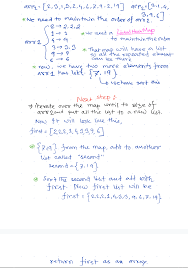 arr1 = [2,3,1,3,2,4,6,7,9,2,19] arr2 = [2,1,4,3,9,6]
* we need to maintain the order of arr2
arr2
2 → 2,2,2
1 → 1
4 → 4
3 → 3,3
9 → 9
6 → 6
to maintain the order
That map will have a list so all the repeated element can be there
* now, we have two more elements from arr1 has left {7,19}.
we have sort this
Next step:
* Iterate over the map until to size of arr2 and put all the list to a new list.
Now it will look like this,
first = [2,2,2,1,4,3,3,9,6]
* {7,19} from the map, add to another list called "second"
second = {7,19}
* Sort the second list and add with first. Now first list will be
first = [2,2,2,1,4,3,3,9,6,7,19]
return first as an array